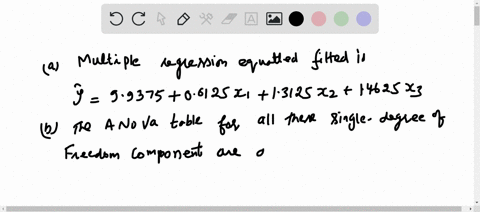 (a) Multiple regression equatted fitted is
ŷ = 9.9375 + 0.6125 x₁ + 1.3125 x₂ + 1.4625 x₃
(b) The ANOVA table for all these single-degree of
Freedom component are o